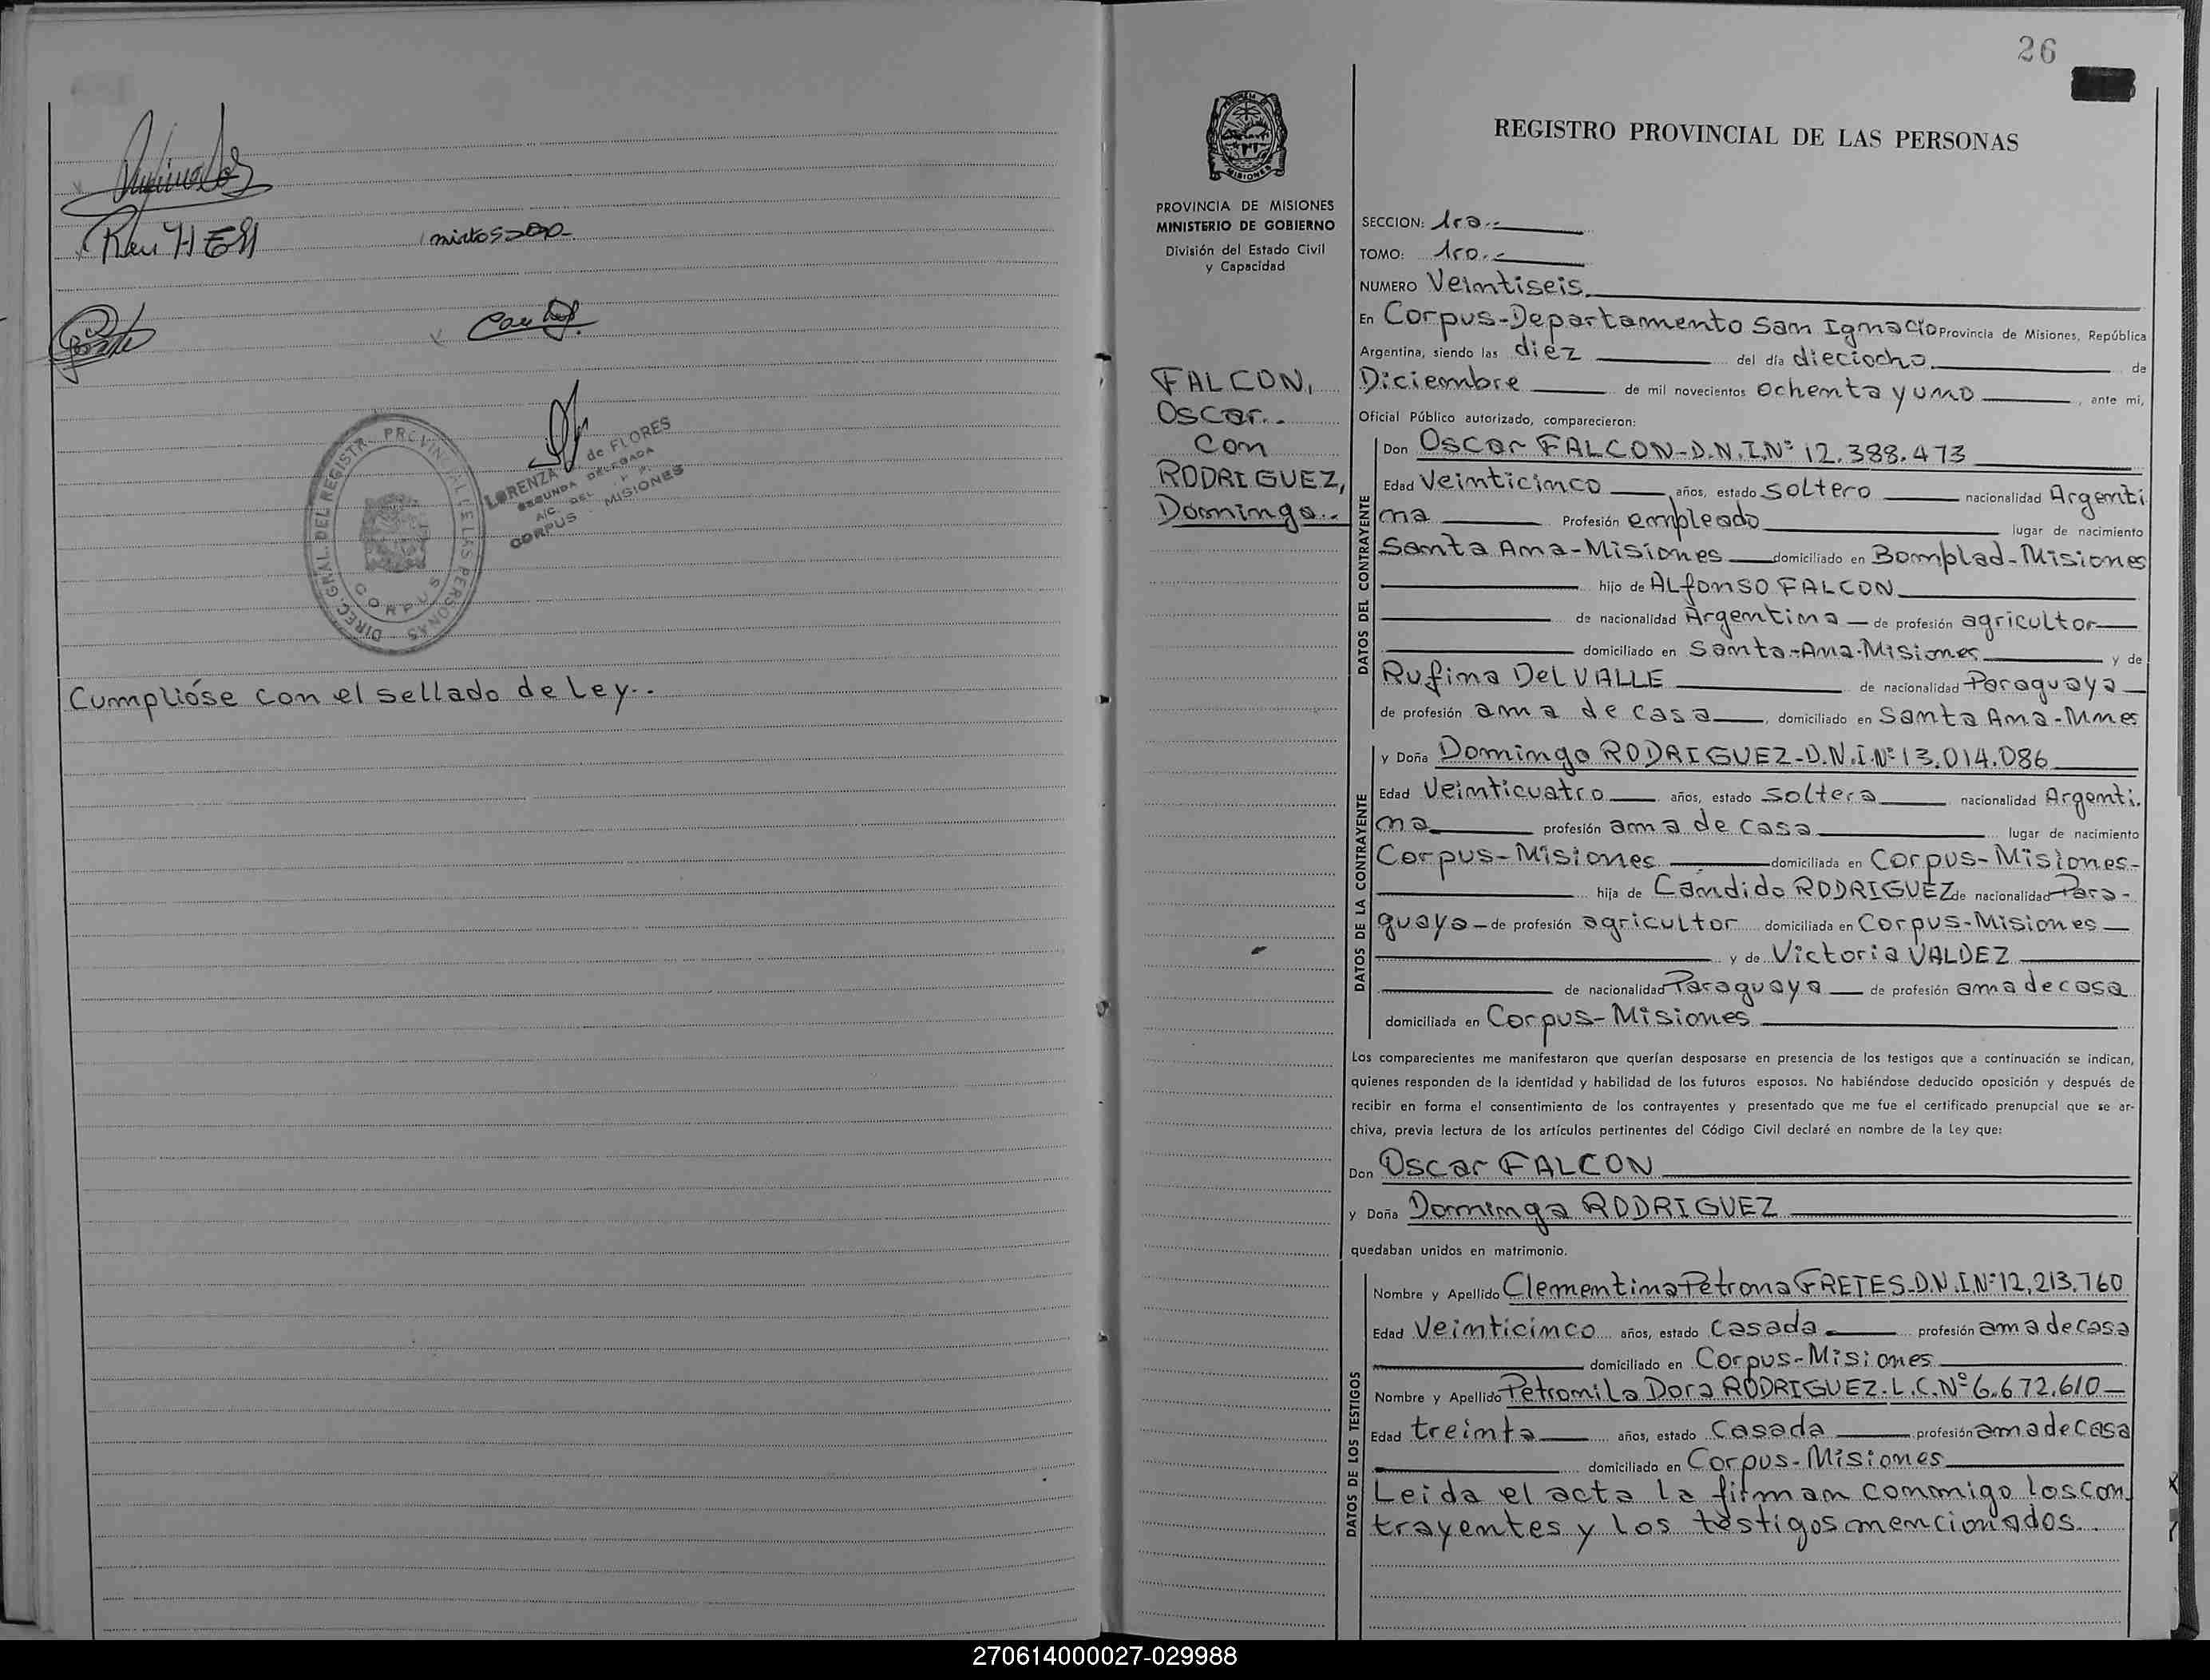 Cumplióse con el sellado de Ley..
DIREC. GRAL. DEL REGISTRO PROVINCIAL DE LAS PERSONAS
CORPUS
LORENZA de FLORES
SEGUNDA DELEGADA
A/C. DEL
CORPUS - MISIONES
26
MISIONES
PROVINCIA DE MISIONES
MINISTERIO DE GOBIERNO
División del Estado Civil
y Capacidad
FALCON,
Oscar..
con
RODRIGUEZ,
Dominga..
REGISTRO PROVINCIAL DE LAS PERSONAS
SECCION: 1ra.-
TOMO: 1ro.-
NUMERO Veintiseis
En Corpus-Departamento San Ignacio Provincia de Misiones, República
Argentina, siendo las diez del día dieciocho de
Diciembre de mil novecientos ochenta y uno, ante mi,
Oficial Público autorizado, comparecieron:
DATOS DEL CONTRAYENTE
Don Oscar FALCON-D.N.I.Nº 12.388.473
Edad Veinticinco años, estado soltero nacionalidad Argenti
na Profesión empleado lugar de nacimiento
Santa Ana-Misiones domiciliado en Bomplad-Misiones
hijo de Alfonso FALCON
de nacionalidad Argentina de profesión agricultor
domiciliado en Santa-Ana-Misiones y de
Rufina Del VALLE de nacionalidad Paraguaya
de profesión ama de casa, domiciliado en Santa Ana-Mnes
DATOS DE LA CONTRAYENTE
y Doña Dominga RODRIGUEZ-D.N.I.Nº 13.014.086
Edad Veinticuatro años, estado soltera nacionalidad Argenti.
na profesión ama de casa lugar de nacimiento
Corpus-Misiones domiciliada en Corpus-Misiones-
hija de Cándido RODRIGUEZ de nacionalidad Para-
guaya de profesión agricultor domiciliada en Corpus-Misiones
y de Victoria VALDEZ
de nacionalidad Paraguaya de profesión ama de casa
domiciliada en Corpus-Misiones
Los comparecientes me manifestaron que querían desposarse en presencia de los testigos que a continuación se indican,
quienes responden de la identidad y habilidad de los futuros esposos. No habiéndose deducido oposición y después de
recibir en forma el consentimiento de los contrayentes y presentado que me fue el certificado prenupcial que se ar-
chiva, previa lectura de los artículos pertinentes del Código Civil declaré en nombre de la Ley que:
Don Oscar FALCON
y Doña Dominga RODRIGUEZ
quedaban unidos en matrimonio.
DATOS DE LOS TESTIGOS
Nombre y Apellido Clementina Petrona FRETES-D.N.I.Nº 12.213.760
Edad Veinticinco años, estado Casada profesión ama de casa
domiciliado en Corpus-Misiones
Nombre y Apellido Petromila Dora RODRIGUEZ. L.C.Nº 6.672.610
Edad treinta años, estado Casada profesión ama de casa
domiciliado en Corpus-Misiones
Leida el acta la firman conmigo los con
trayentes y los testigos mencionados..
270614000027-029988